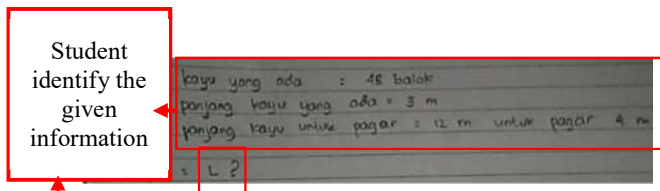 Student
identify the
given
information
kayu yang ada : 48 balok
panjang kayu yang ada = 3 m
panjang kayu untuk pagar : 12 m untuk pagar 4 m
= L ?